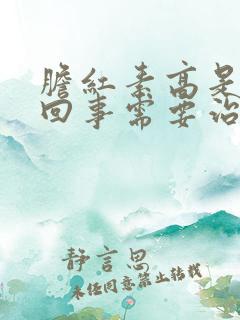 膽紅素高是
回事需要治
靜言思
未经同意禁止转载